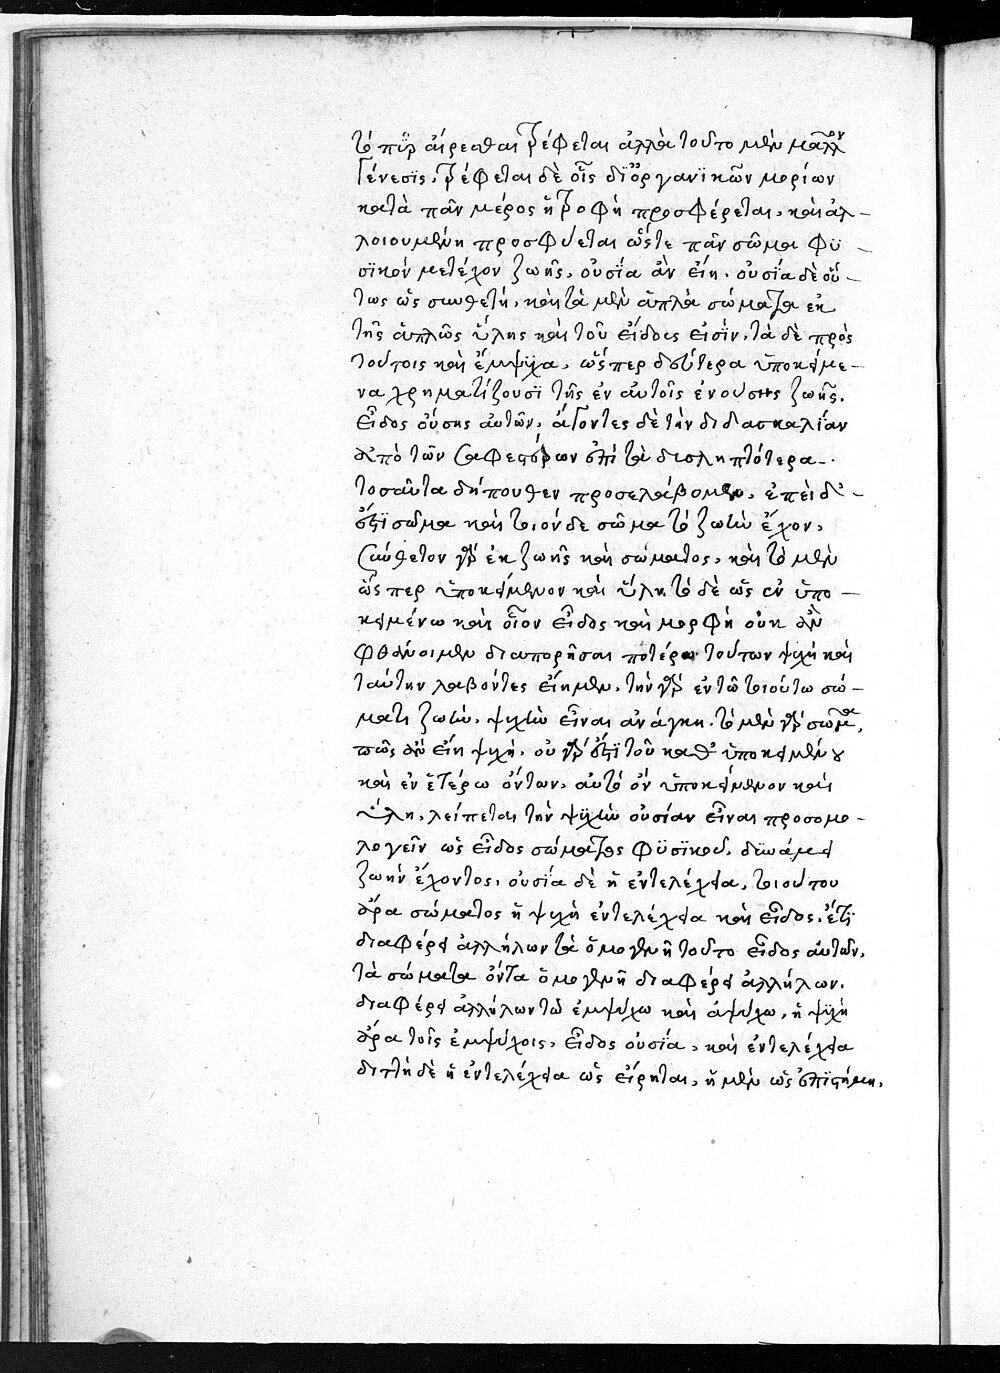 τὸ πῦρ αἰρεσθαι τρέφεται ἀλλὰ τοῦτο μὲν μᾶλλον
γένεσϊς, τρέφεται δὲ οἷς δι' ὀργανϊκῶν μορίων
κατὰ πᾶν μέρος ἡ τροφὴ προσφέρεται, καὶ ἀλ–
λοιουμένη προσφύεται ὥστε πᾶν σῶμα φϋ–
σϊκον μετέχον ζωῆς, οὐσΐα ἂν εἴη. οὐσΐα δὲ οὕ–
τως ὡς συνθετὴ, καὶ τὰ μὲν ἁπλὰ σώματα ἐκ
τῆς ἁπλῶς ὕλης καὶ τοῦ εἴδους εἰσὶν, τὰ δὲ πρὸς
τούτοις καὶ ἔμψϋχα, ὥσπερ δεύτερα ὑποκείμε–
να χρηματίζουσϊ τῆς ἐν αὐτοῖς ἐνούσης ζωῆς.
εἶδος οὔσης αὐτῶν, ἄγοντες δὲ τὴν διδασκαλΐαν
ἀπὸ τῶν σαφεστέρων ἐπὶ τὰ δυσληπτότερα.
τοσαῦτα δήπουθεν προσελάβομεν, ἐπεὶ δ' –
ἐστϊ σῶμα καὶ τοιόνδε σῶμα τὸ ζωὴν ἔχον,
σύνθετον γὰρ ἐκ ζωῆς καὶ σώματος, καὶ τὸ μὲν
ὥσπερ ὑποκείμενον καὶ ὕλη τὸ δὲ ὡς ἐν ὑπο–
κειμένω καὶ οἷον εἶδος καὶ μορφὴ οὐκ ἂν
φθάνοιμεν διαπορῆσαι πότερον τούτων ψυχὴ καὶ
ταύτην λαβόντες εἴημεν, τὴν γὰρ ἐν τῶ τοιούτω σώ–
ματι ζωὴν, ψυχὴν εἶναι ἀνάγκη. τὸ μὲν γὰρ σῶμα,
πῶς ἂν εἴη ψυχὴ, οὐ γὰρ ἐστϊ τοῦ καθ' ὑποκειμένου
καὶ ἐν ἑτέρω ὄντων, αὐτὸ ὂν ὑποκείμενον καὶ
ὕλη, λείπεται τὴν ψϋχὴν οὐσίαν εἶναι προσομο–
λογεῖν ὡς εἶδος σώματος φϋσϊκοῦ, δϋνάμει
ζωὴν ἔχοντος, οὐσΐα δὲ ἡ ἐντελέχεια, τοιούτου
ἄρα σώματος ἡ ψυχὴ ἐντελέχεια καὶ εἶδος, ἔτϊ
διαφέρει ἀλλήλων τὰ ὁμογενῆ τοῦτο εἶδος αὐτῶν,
τὰ σώματα ὄντα ὁμογενῆ διαφέρει ἀλλήλων.
διαφέρει ἀλλήλων τῶ ἐμψύχω καὶ ἀψύχω, ἡ ψϋχὴ
ἄρα τοῖς ἐμψύχοις, εἶδος οὐσΐα, καὶ ἐντελέχεια
διττὴ δὲ ἡ ἐντελέχεια ὡς εἴρηται, ἡ μὲν ὡς ἐπϊστήμη,